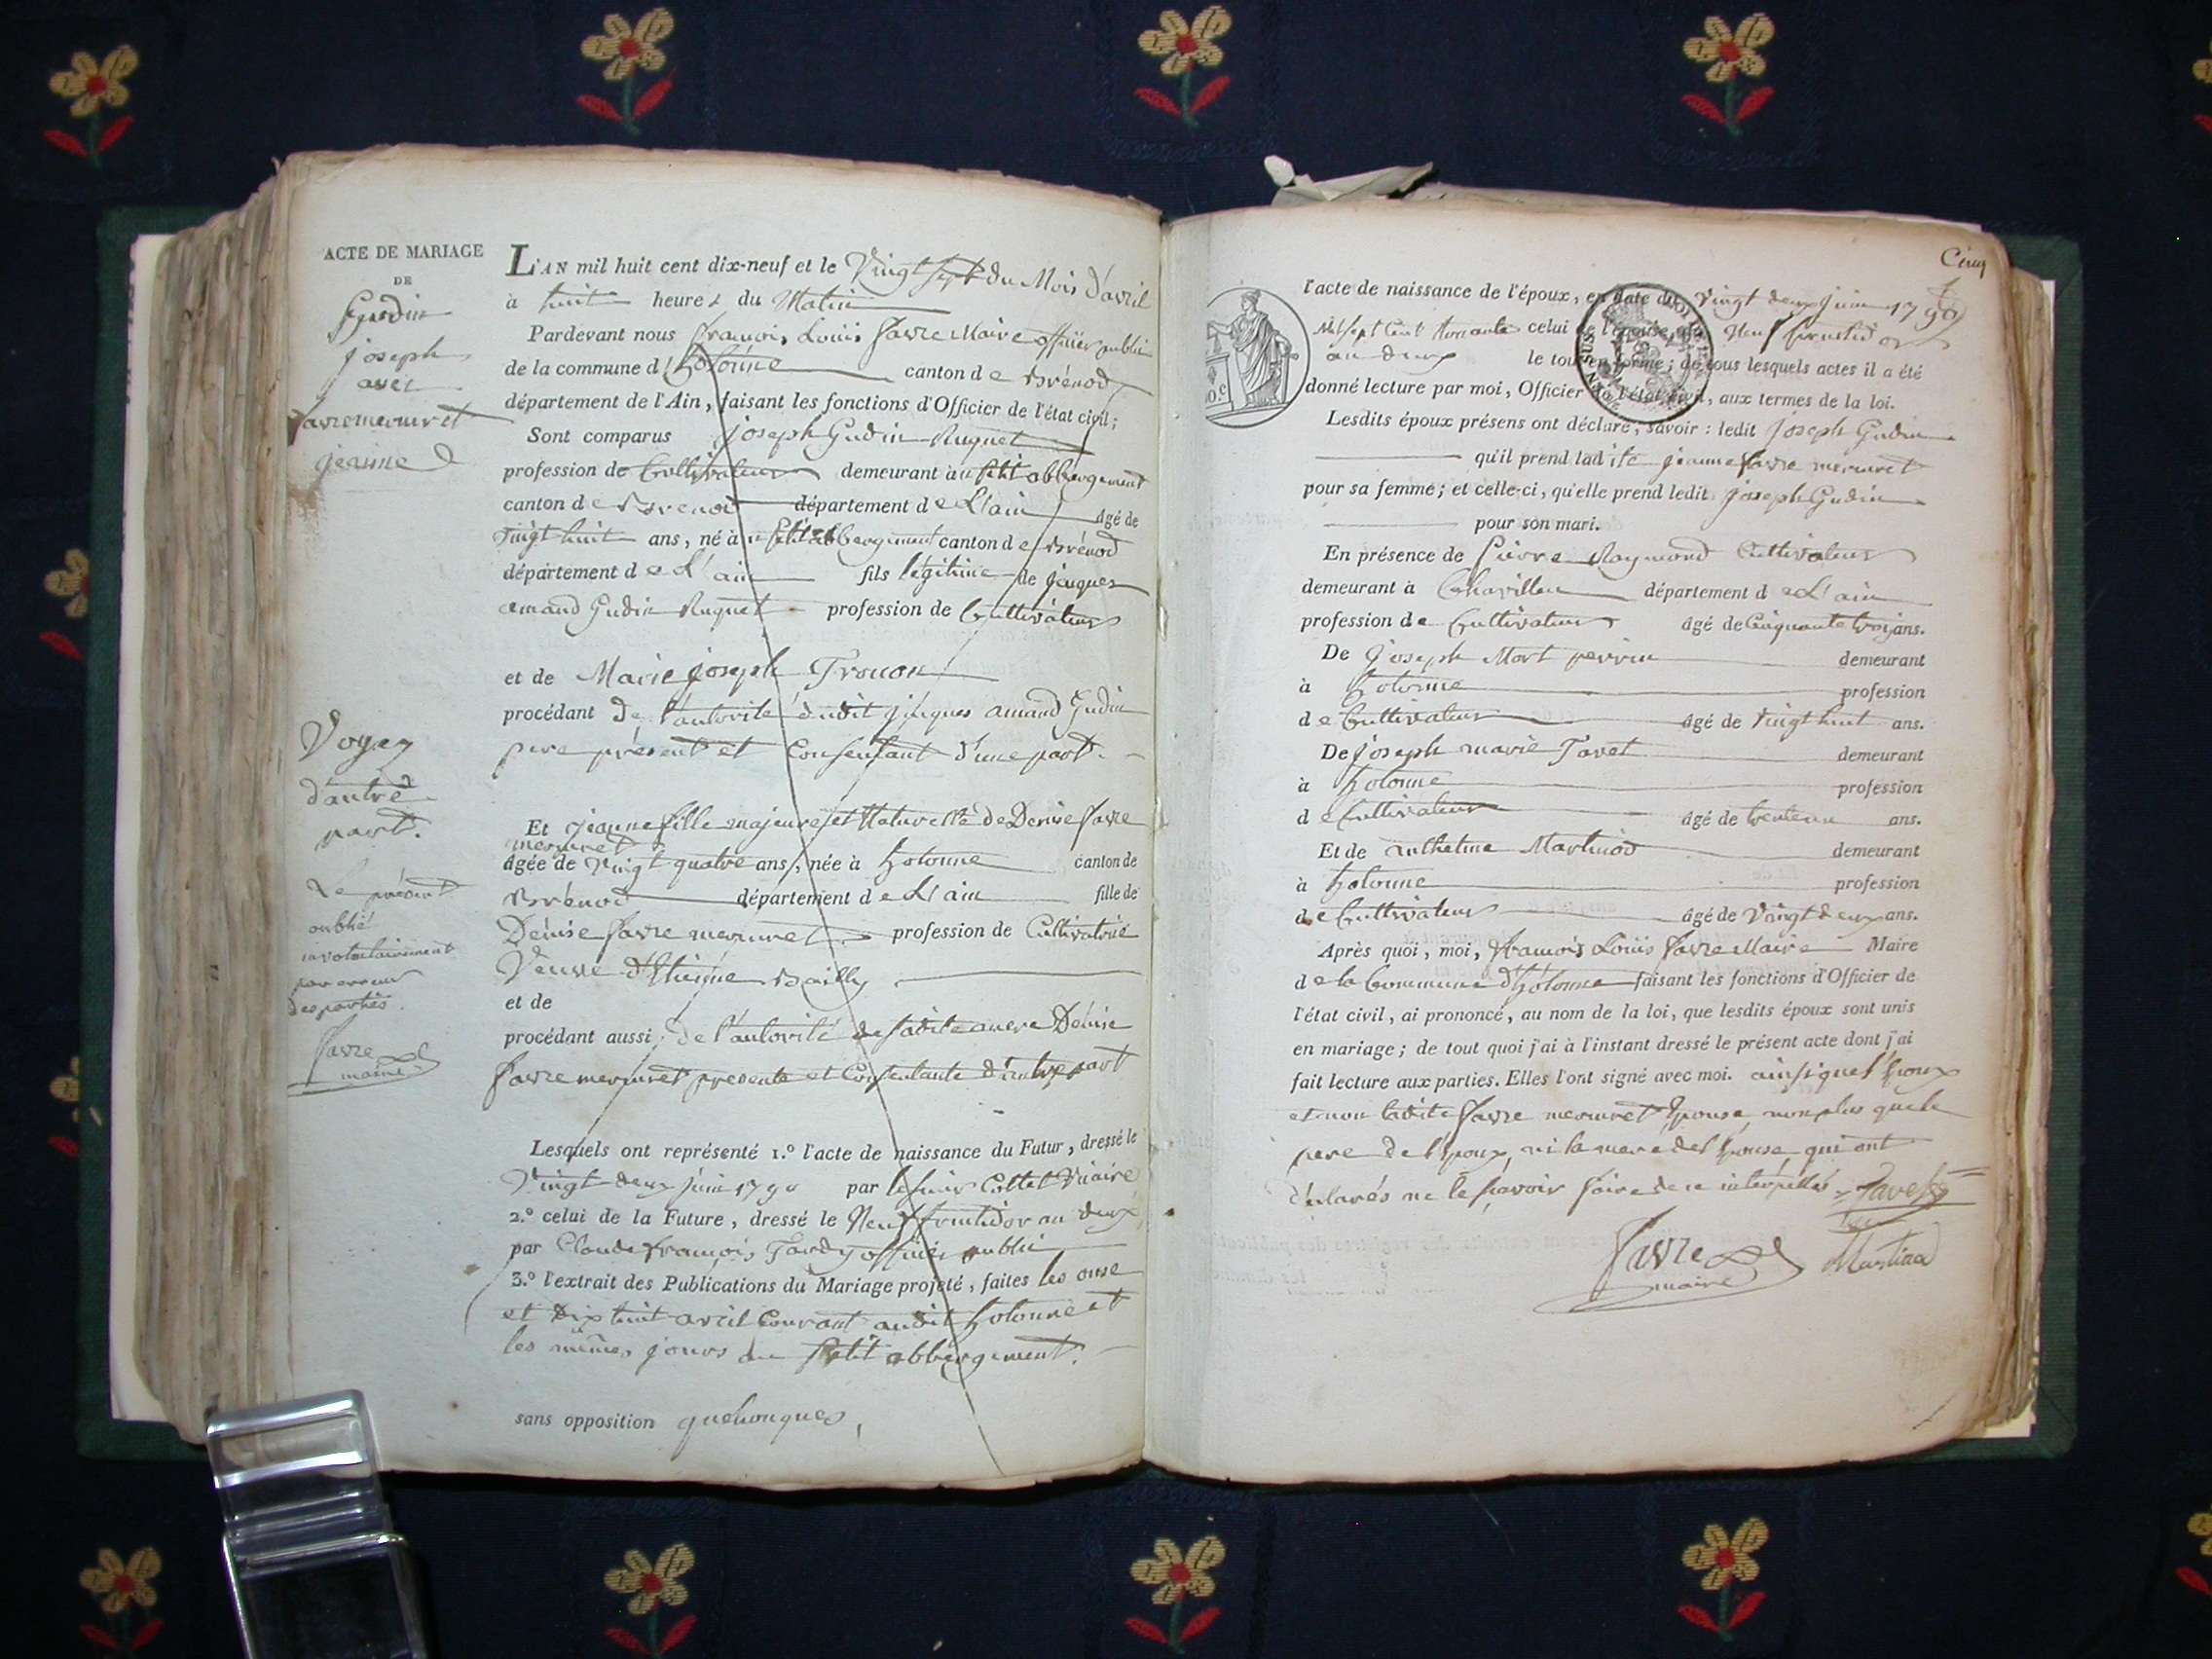 ACTE DE MARIAGE
DE
Gudin
joseph
avec
favre mermet
jeanne
Voyez
d'autre
part.
Le présent
oublié
involontairement
par erreur
des parties.
favre
maire
L'AN mil huit cent dix-neuf et le Vingt sept du Mois d'avril
à huit heures du Matin
Pardevant nous françois Louis favre Maire officier public
de la commune d'hotonne canton de Brénod
département de l'Ain, faisant les fonctions d'Officier de l'état civil;
Sont comparus joseph Gudin Ruquet
profession de Cultivateur demeurant au petit abbergement
canton de Brenod département de L'ain âgé de
vingt huit ans, né au petit abbergement canton de Brénod
département de L'ain fils légitime de jacques
amand Gudin Ruquet profession de Cultivateur
et de Marie joseph Tronon
procédant De l'autorité dudit jacques amand Gudin
pere présent et Consentant d'une part.
Et jeanne fille majeure et Naturelle de Denise favre
mermet
âgée de vingt quatre ans, née à hotonne canton de
Brénod département de L'ain fille de
Denise favre mermet profession de Cultivatrice
Veuve d'Etienne Bailly
et de
procédant aussi de l'autorité de sadite mere Denise
favre mermet presente et Consentante d'autre part
Lesquels ont représenté 1.º l'acte de naissance du Futur, dressé le
Vingt deux juin 1790 par le sieur Cottet Vicaire
2.º celui de la Future, dressé le Neuf fructidor an deux
par Claude françois Tardy officier public
3.º l'extrait des Publications du Mariage projeté, faites les onse
et dix huit avril Courant audit hotonne et
les mêmes jours au petit abbergement.
sans opposition quelconques,
Cinq
l'acte de naissance de l'époux, en date du Vingt deux juin 1790
Mil sept Cent nonante celui de l'épouse, du Neuf fructidor
an deux le tout en forme; de tous lesquels actes il a été
donné lecture par moi, Officier de l'état civil, aux termes de la loi.
Lesdits époux présens ont déclaré, savoir: ledit joseph Gudin
qu'il prend ladite jeanne favre mermet
pour sa femme; et celle-ci, qu'elle prend ledit joseph Gudin
pour son mari.
En présence de pierre Raymond Cultivateur
demeurant à Chavillieu département de L'ain
profession de Cultivateur âgé de Cinquante trois ans.
De joseph Mort perrin demeurant
à hotonne profession
de Cultivateur âgé de vingt huit ans.
De joseph marie Tavet demeurant
à hotonne profession
de Cultivateur âgé de trente un ans.
Et de anthelme Martinod demeurant
à hotonne profession
de Cultivateur âgé de Vingt deux ans.
Après quoi, moi, françois Louis favre Maire Maire
de la Commune d'hotonne faisant les fonctions d'Officier de
l'état civil, ai prononcé, au nom de la loi, que lesdits époux sont unis
en mariage; de tout quoi j'ai à l'instant dressé le présent acte dont j'ai
fait lecture aux parties. Elles l'ont signé avec moi. ainsi que l'Epoux
et non ladite favre mermet Epouse, non plus que le
pere de l'Epoux, ni la mere de l'Epouse qui ont
déclarés ne le sçavoir faire de ce interpellés. Tavet
favre Martinod
maire